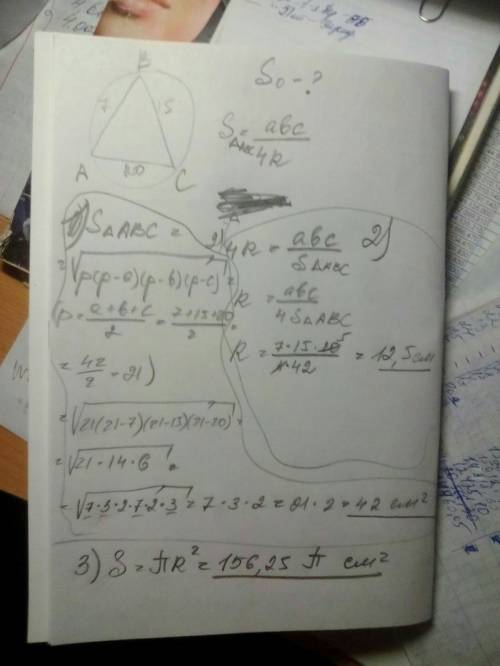 B
7
15
A
20
C
S₀ - ?
S△ABC = abc/4R
1) S△ABC =
= √p(p-a)(p-b)(p-c) =
(p = a+b+c/2 = 7+15+20/2 =
= 42/2 = 21)
= √21(21-7)(21-15)(21-20) =
= √21·14·6 =
= √7·3·2·7·2·3 = 7·3·2 = 21·2 = 42 см²
2)
4R = abc/S△ABC
R = abc/4S△ABC
R = 7·15·20 5/4·42 = 12,5 см
3) S = πR² = 156,25 π см²